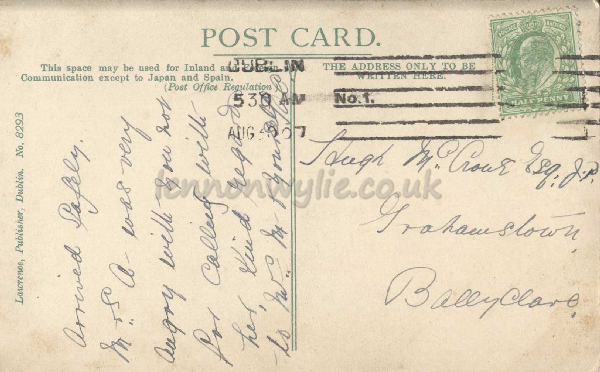 POST CARD.
This space may be used for Inland and Foreign
Communication except to Japan and Spain.
(Post Office Regulation
THE ADDRESS ONLY TO BE
WRITTEN HERE.
DUBLIN
530 AM
AUG 07
No.1.
Lawrence, Publisher, Dublin. No. 8293
Arrived Safely.
Mrs A- was very
angry with you not
for calling with
her, Kind regards
to Mrs Mc & yourself
Hugh McCrone Esq. J.P.
Grahamstown,
BallyClare.
lennonwylie.co.uk